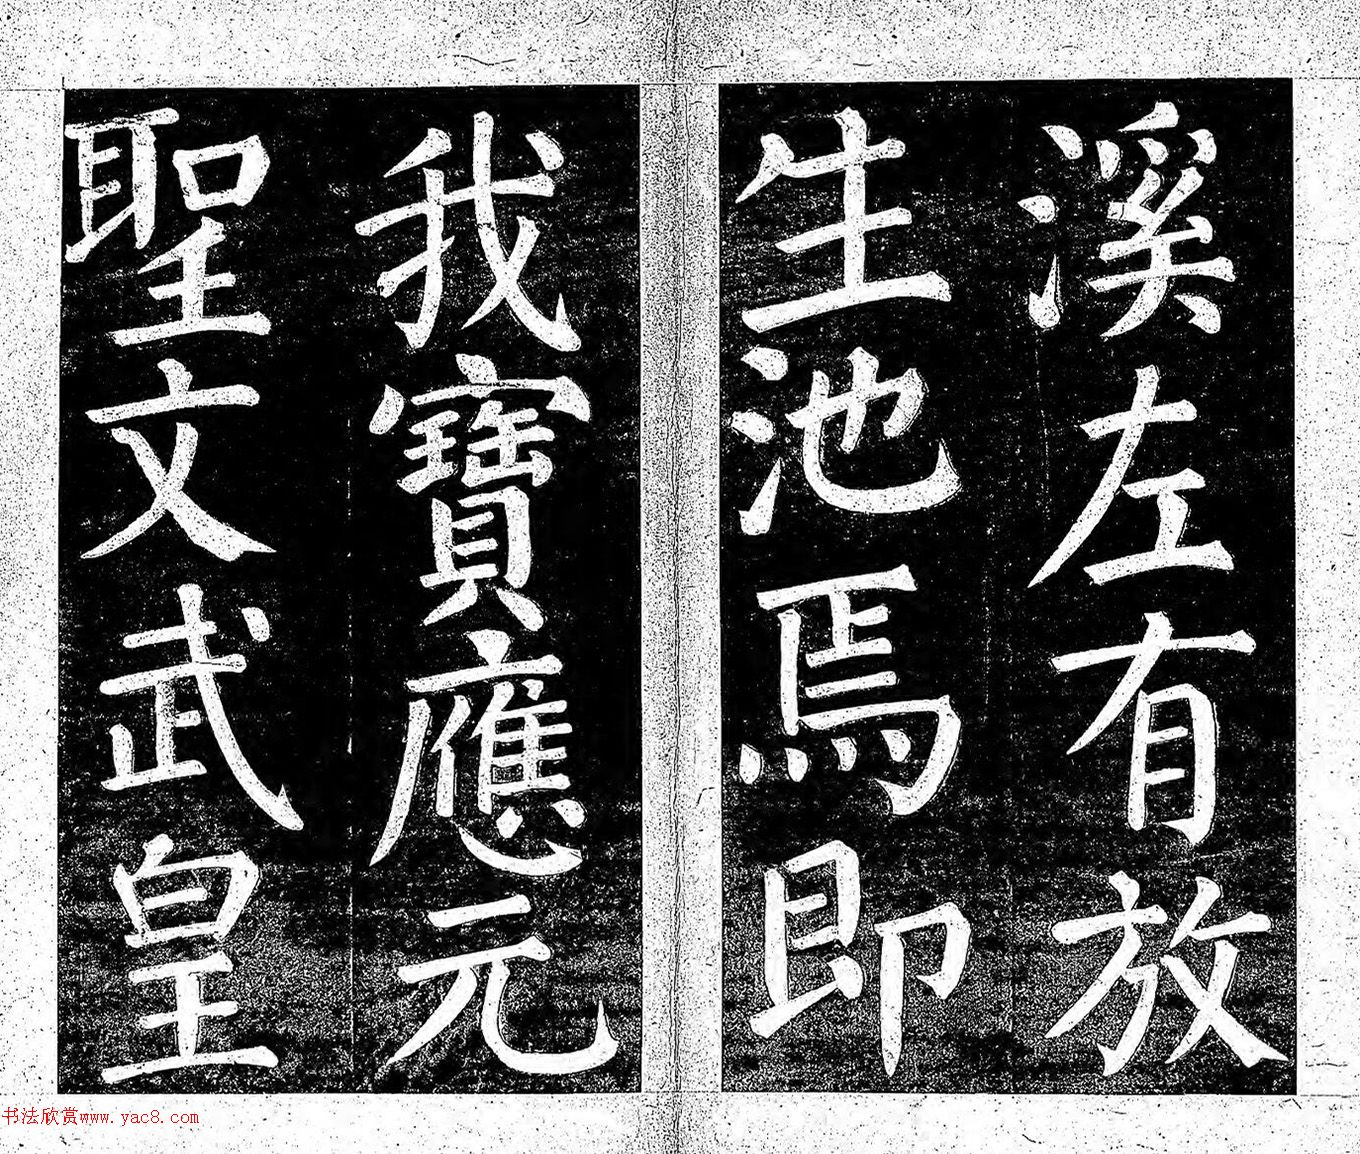 溪左有放
生池焉即
我寶應元
聖文武皇
书法欣赏www.yac8.com